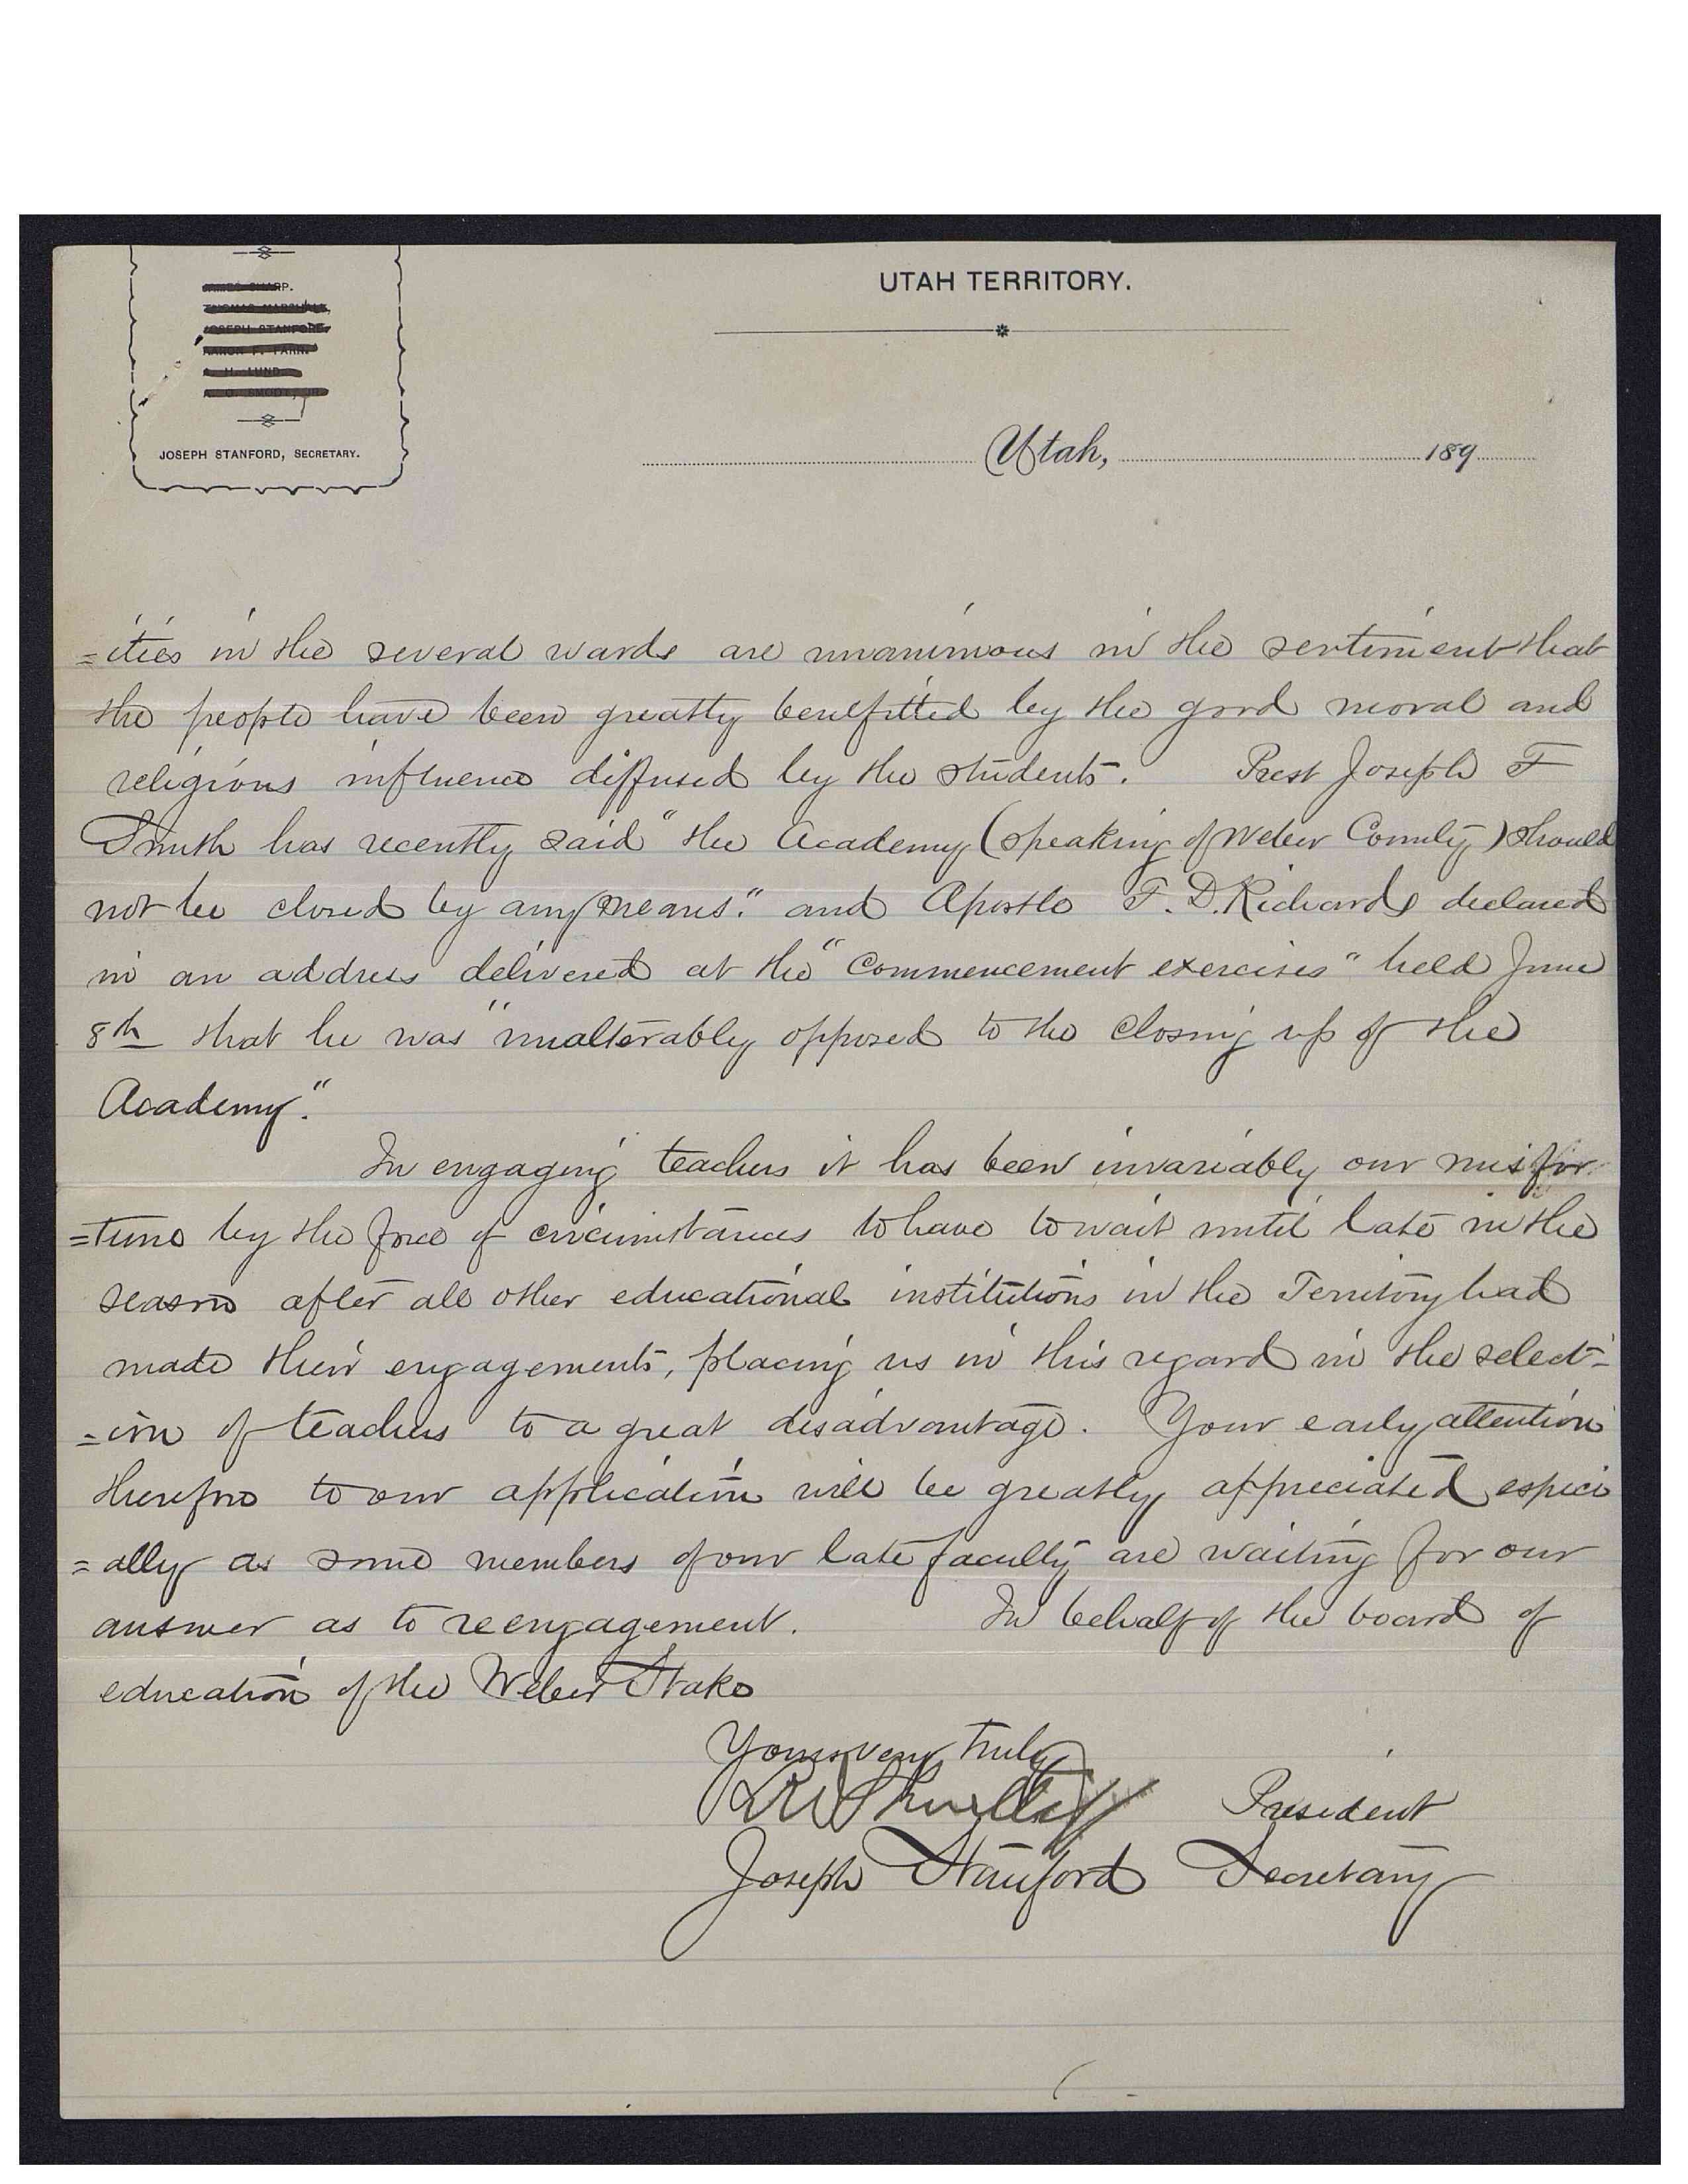 JAMES SHARP.
THOMAS MARSHALL.
JOSEPH STANFORD.
AARON F. FARR.
A. H. LUND.
A. O. SMOOT, JR.
JOSEPH STANFORD, SECRETARY.
UTAH TERRITORY.
Utah, 189
=ities in the several wards are unanimous in the sentiment that
the people have been greatly benefitted by the good moral and
religious influence diffused by the students. Prest Joseph F
Smith has recently said "the Academy (speaking of Weber County) should
not be closed by any means." and Apostle F. D. Richards declared
in an address delivered at the "Commencement exercises" held June
8th that he was "unalterably opposed to the closing up of the
Academy."
In engaging teachers it has been invariably our misfor
=tune by the force of circumstances to have to wait until late in the
season after all other educational institutions in the Territory had
made their engagements, placing us in this regard in the select=
=ion of teachers to a great disadvantage. Your early attention
therefore to our application will be greatly appreciated especi
=ally as some members of our late faculty are waiting for our
answer as to reengagement. In behalf of the board of
education of the Weber Stake
Yours very truly
L W Shurtliff President
Joseph Stanford Secretary